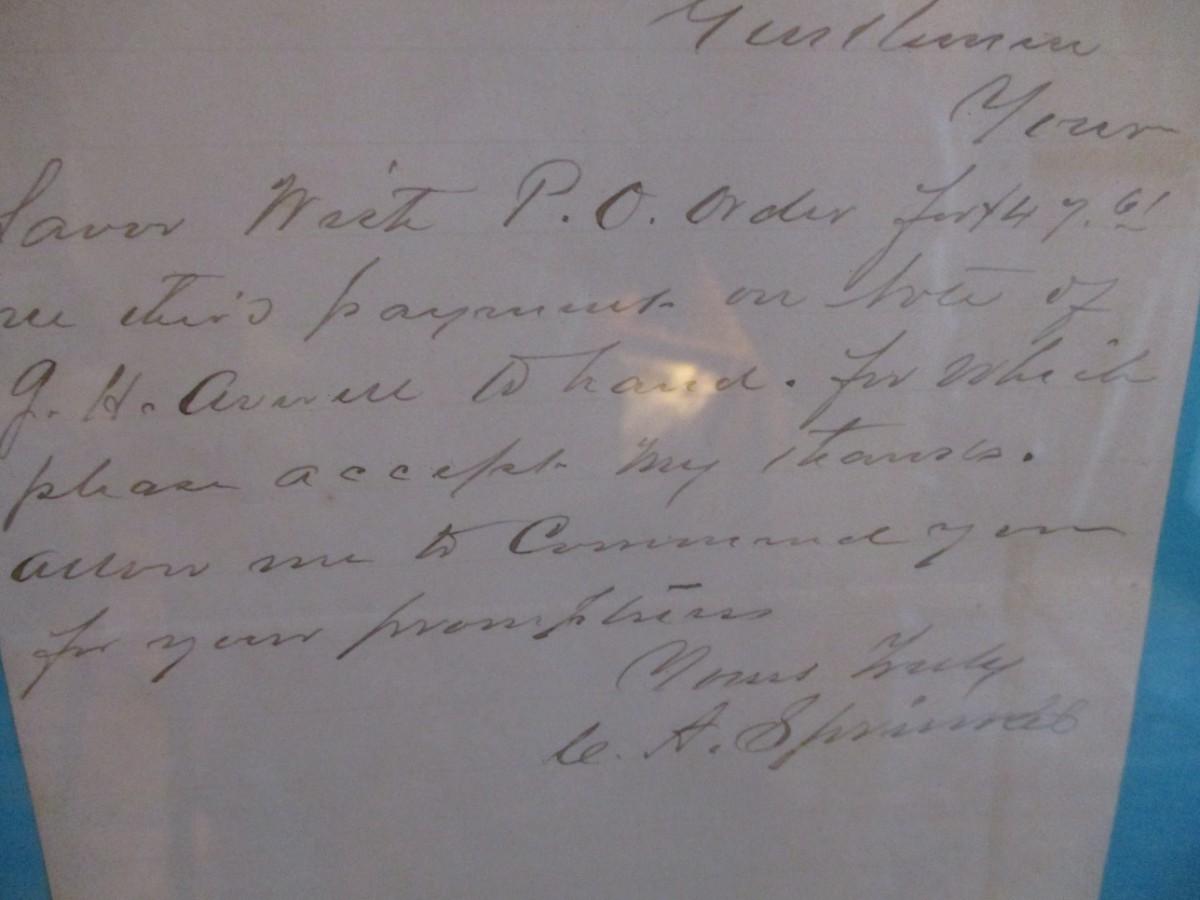 Gentlemen
Your
favor With P.O. Order for $47.61
this payment on Note of
G. H. to hand. for which
please accept my thanks.
allow me to Commend you
for your promptness
Yours Truly
C. A.